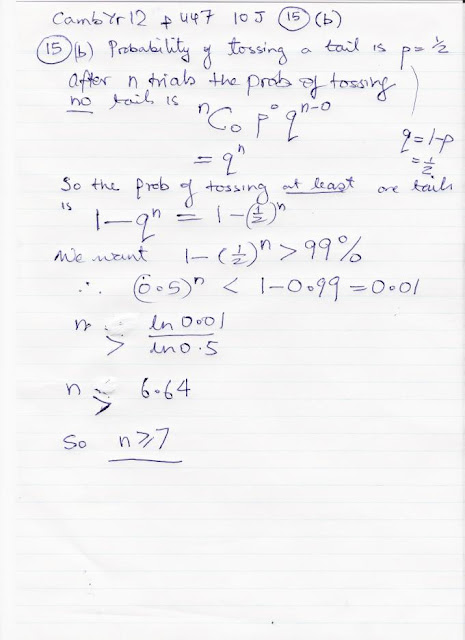 Camb Yr 12 p 447 10J (15) (b)
(15) (b) Probability of tossing a tail is p = ½
After n trials the prob of tossing
no tails is ⁿC₀ p⁰ qⁿ⁻⁰
q = 1-p
= qⁿ
= ½
So the prob of tossing at least one tail
is 1 - qⁿ = 1 - (½)ⁿ
We want 1 - (½)ⁿ > 99%
∴ (0.5)ⁿ < 1 - 0.99 = 0.01
n > ln 0.01 / ln 0.5
n > 6.64
So n ⩾ 7